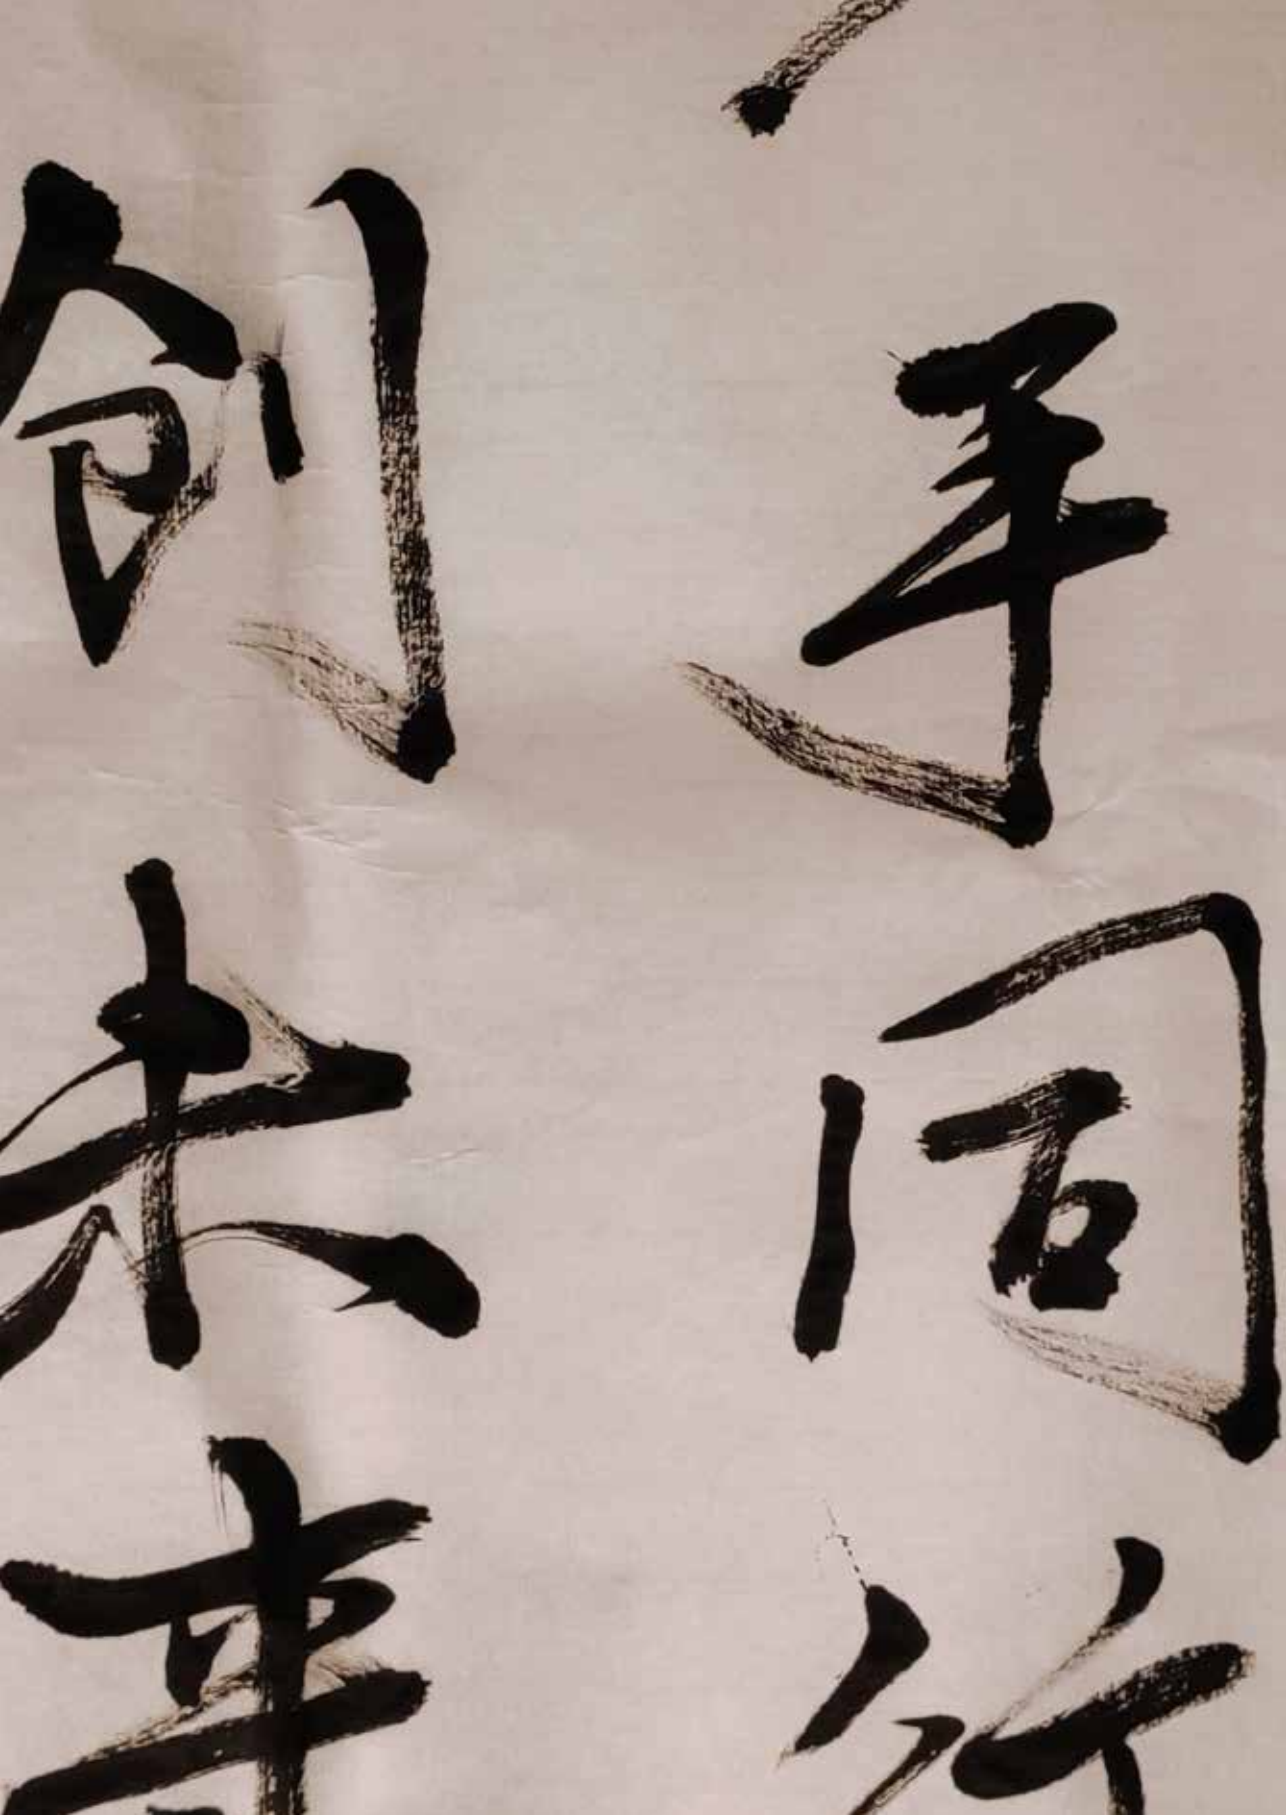 手同行
创未来